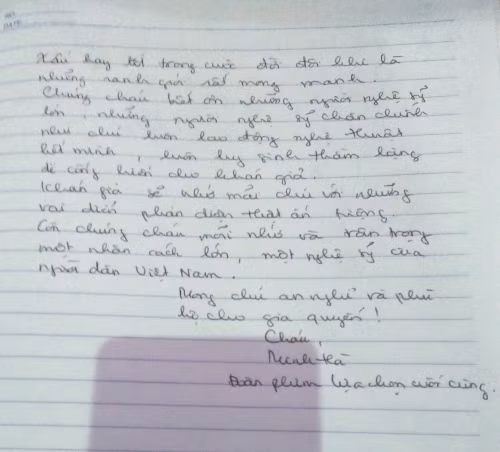 Xấu hay tốt trong cuộc đời đôi khi là
những ranh giới rất mong manh.
Chúng cháu biết ơn những người nghệ sỹ
lớn, những người nghệ sỹ chân chính
như chú luôn lao động nghệ thuật
hết mình, luôn hy sinh thầm lặng
để cống hiến cho khán giả.
Khán giả sẽ nhớ mãi chú với những
vai diễn phản diện thật ấn tượng.
Còn chúng cháu mãi nhớ và trân trọng
một nhân cách lớn, một nghệ sỹ của
người dân Việt Nam.
Mong chú an nghỉ và phù
hộ cho gia quyến!
Cháu,
Minh Hà
Đoàn phim Lựa chọn cuối cùng.